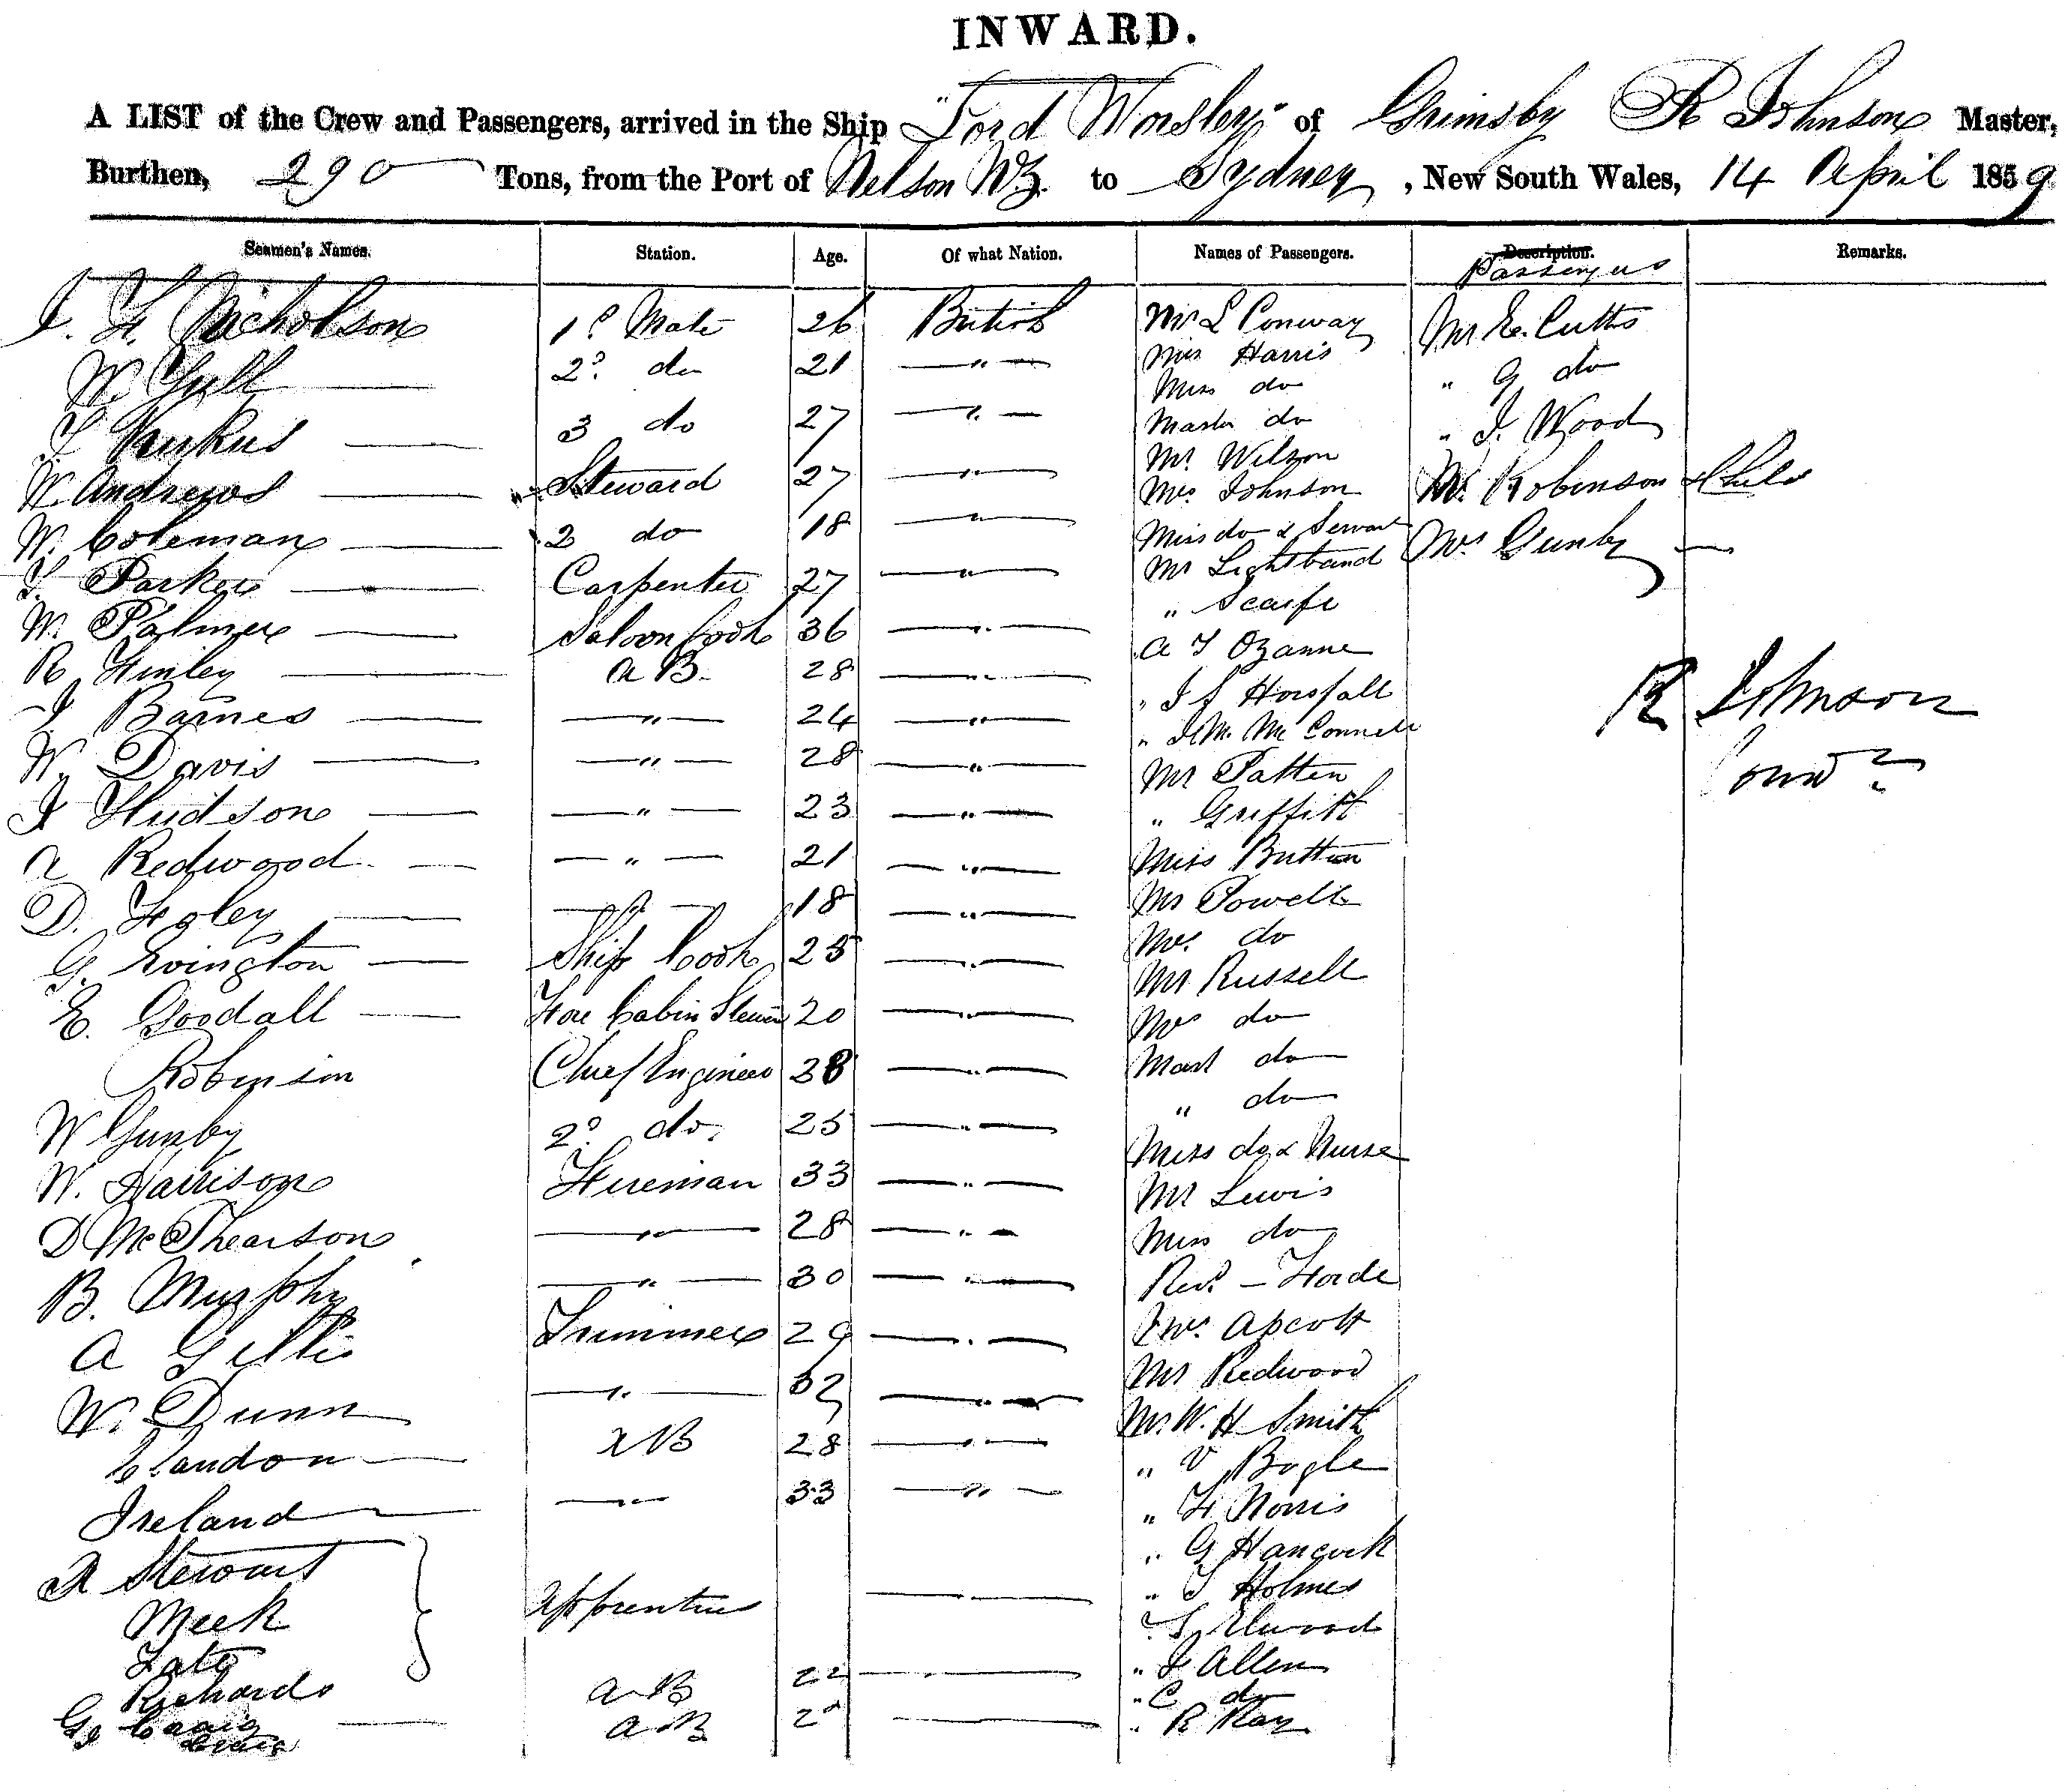 INWARD.
A LIST of the Crew and Passengers, arrived in the Ship "Lord Worsley" of Grimsby R Johnson Master,
Burthen, 290 Tons, from the Port of Nelson NZ. to Sydney, New South Wales, 14 April 1859
Seamen's Names. Station. Age. Of what Nation. Names of Passengers. Description. Remarks.
Passengers
Nicholson 1o Mate 26 British Mr L Conway Mr E. Cutts
W. Gull 2o. do 21 " Mrs Harris " G do
3 do 27 " Miss do " J. Wood
Master do
W. Andrews Steward 27 " Mr Wilson Mr. Robinson & Child
W. Coleman 2 do 18 " Mrs Johnson Mrs Gunby
Miss do & Servant
Parker Carpenter 27 " Mr Lightband
W. Palmer Saloon Cook 36 " " Scaife
R Finley A B. 28 " A T Ozanne
J Barnes " 24 " " J S Horsfall
W. Davis " 28 " " McConnell
J Hudson " 23 " Mr Patten
A Redwood " 21 " " Griffith
D. Foley " 18 " Miss Button
Mr Powell
G. Evington Ship Cook 25 " Mrs. do
E. Goodall Fore Cabin Steward 20 " Mr Russell
Mrs do
Robinson Chief Engineer 38 " Mast do
W Gunby 2o. do. 25 " " do
W. Harrison Fireman 33 " Miss do & Nurse
D McPhearson " 28 " Mr Lewis
Miss do
B. Murphy " 30 " Revd. - Forde
A Gillis Trimmer 29 " Mrs.
W. Dunn " 32 " Mr Redwood
A B 28 " Mr. W. H Smith
Ireland " 33 " " V Bogle
" F Norris
R Stewart " G Hancock
Meek Apprentices " T Holmes
Tate
Richards A B 22 " J Allen
G. Craig A B " C do
" R Ray
R Johnson
Comdr.